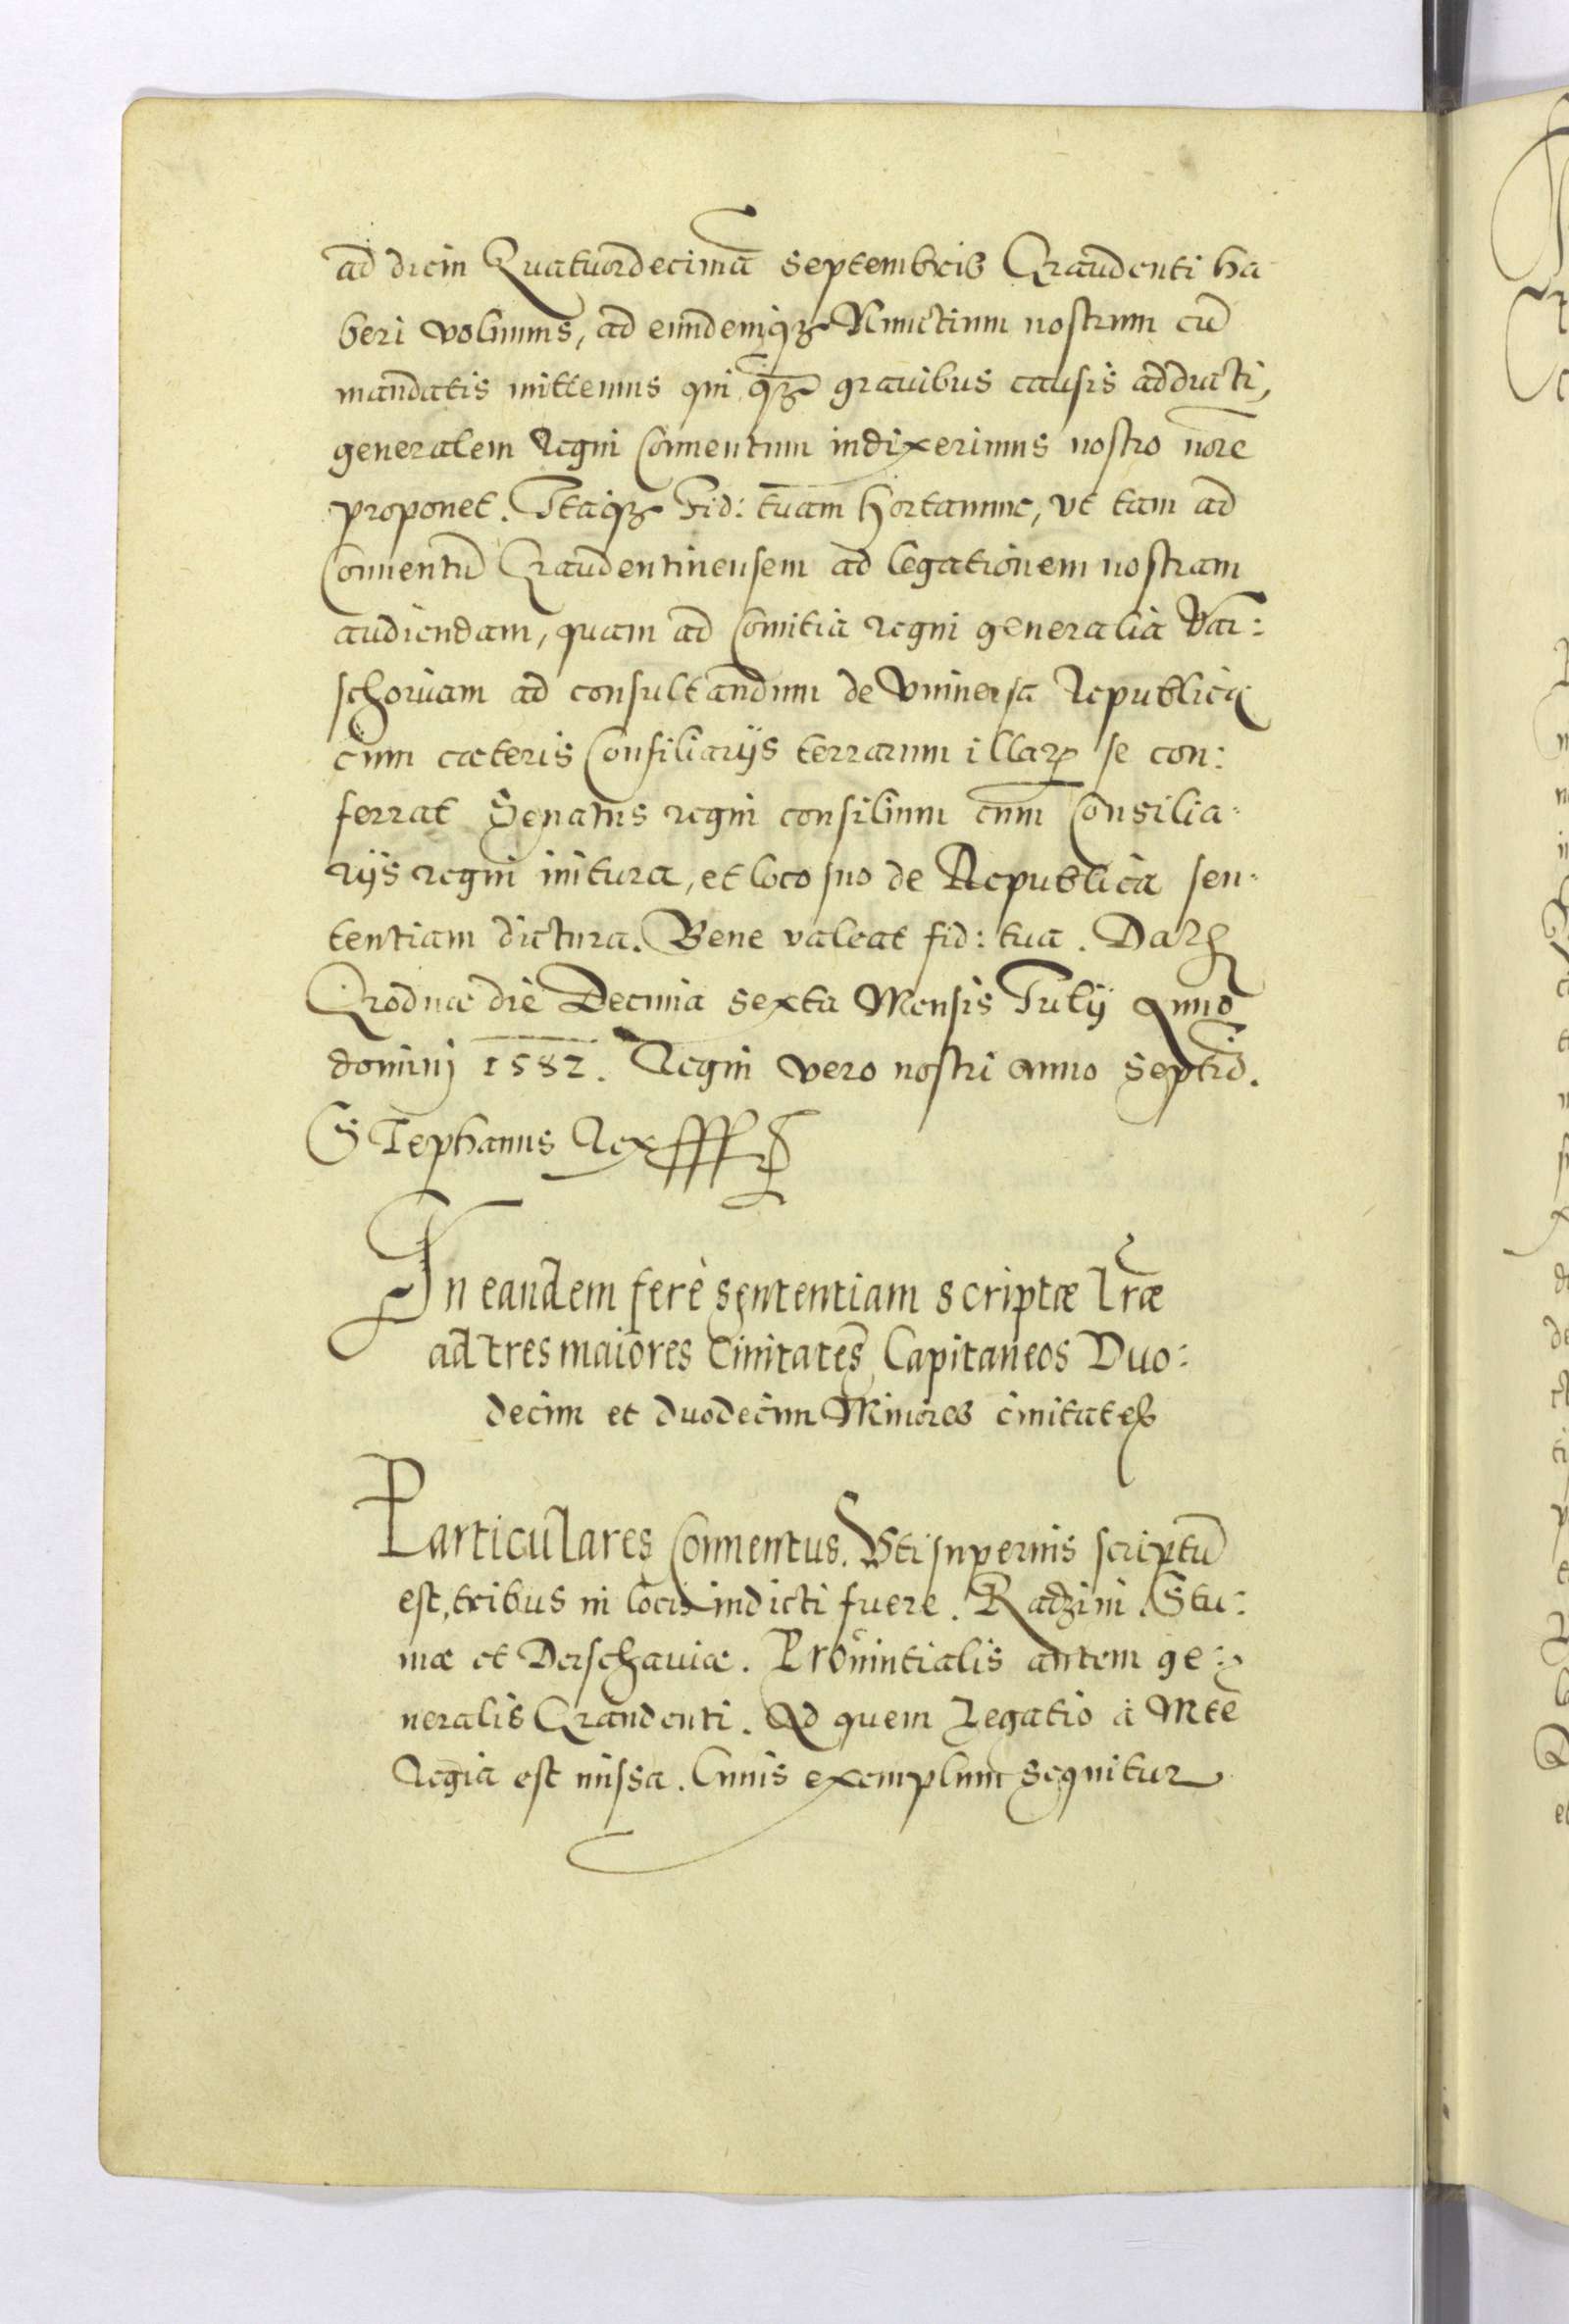 ad diem Quatuordecimā Septembris Graudenti ha
beri volumus, ad eundemq₃ Nunctium nostrum cū
mandatis mittemus qui q̄₃ grauibus causis adducti,
generalem Regni Conuentum indixerimus nostro nōre
proponet. Itaq₃ Fid: tuam hortamur, vt tam ad
Conuentū Graudentinensem ad legationem nostram
audiendam, quam ad Comitia regni generalia Var:
schouiam ad consultandum de vniuersa Republica
cum cæteris Consiliarijs terrarum illaꝝ se con:
ferrat Senatus regni consilium cum Consilia:
rijs regni initura, et loco suo de Republica sen:
tentiam dictura. Bene valeat fid: tua. Datꝫ
Grodnæ die Decima sexta Mensis Iulij Anno
dominj 1582. Regni vero nostri anno Septiō.
STephanus Rex
In eandem ferè sententiam scriptæ lræ
ad tres maiores Ciuitates, Capitaneos Duo:
decim et duodecim Minores ciuitates
Particulares Conuentus. Vti superius scriptū
est, tribus in locis indicti fuere. Radzini. Stu:
mæ et Derschauiæ. Prouintialis autem ge:
neralis Graudenti. Ad quem Legatio à Mtē
Regia est missa. Cuius exemplum sequitur